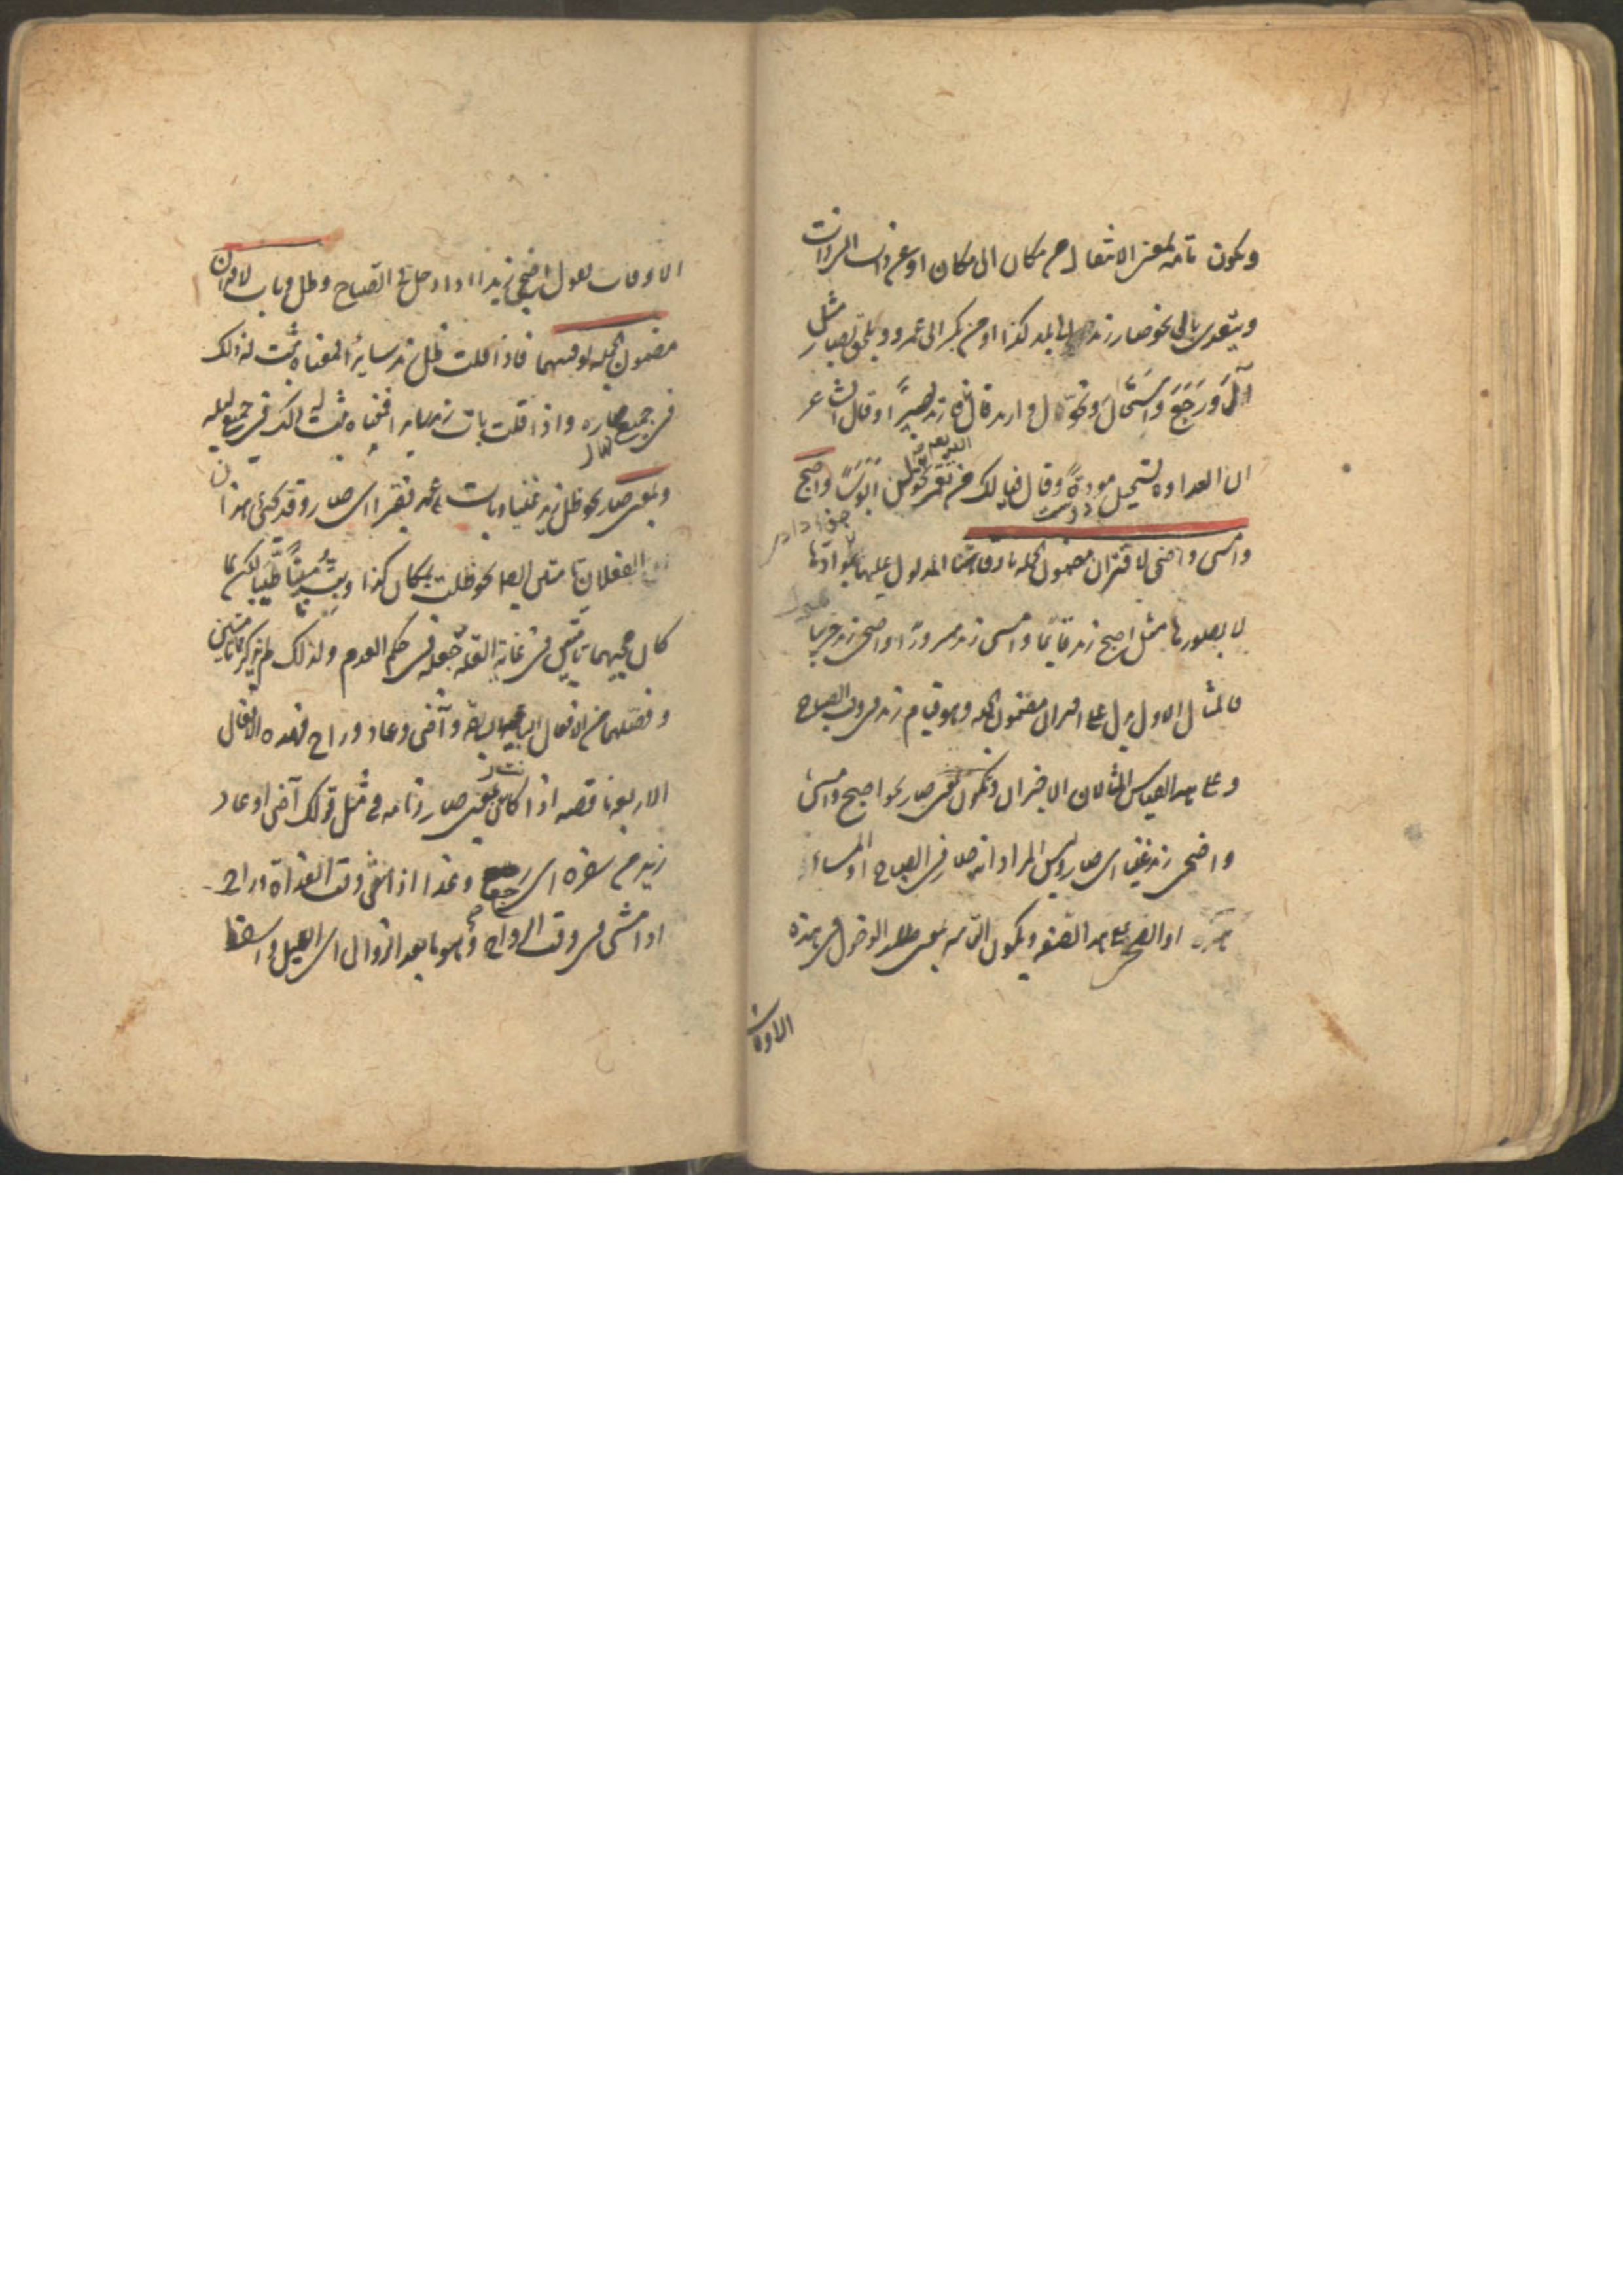 وتكون تامة بمعنى الانتقال من مكان الى مكان او من ذات الى ذات
ويتعدى بالى نحو صار زيد الى بلد كذا او من بكر الى عمرو ويلحق بصار مثل
آل ورجع واستحال وتحول وارتد قال الله فارتد بصيرا وقال الشاعر
ان العداوة تستحيل مودة وقال فيا لك من نعمى تحولن ابؤسا واصبح
دوست
وامسى واضحى لاقتران مضمون الجملة باوقاتها المدلول عليها بموادّها
لا بصورها مثل اصبح زيد قايما وامسى زيد مسرورا واضحى زيد حزينا
فالمثال الاول يدل على اقتران مضمون الجملة وهو قيام زيد فى وقت الصباح
وعلى هذا القياس المثالان الاخيران وتكون بمعنى صار نحو اصبح وامسى
واضحى زيد غنيا اى صار وليس المراد انه صار فى الصباح او المساء
او الضحى على هذه الصفة ويكون التامة بمعنى الدخول فى هذه
الاوقات
الاوقات تقول اضحى زيد اذا دخل فى الصباح وظل وبات لاقتران
مضمون الجملة بوقتيهما فاذا قلت ظل زيد سايرا فمعناه ثبت له ذلك
فى جميع نهاره واذا قلت بات زيد سايرا فمعناه ثبت له ذلك فى جميع ليله
وبمعنى صار نحو ظل زيد غنيا وبات عمرو فقيرا اى صار وقد يجئ هذان
الفعلان تامتين ايضا نحو ظلت بمكان كذا وبت مبيتا طيبا لكن لما
كان مجيئهما تامتين فى غاية القلة جعله فى حكم العدم ولذلك لم يذكر تامتين
وفصلهما من الافعال السابقة وآض وعاد وراح فهذه الافعال
الاربعة ناقصة اذا كانت بمعنى صار وتامة فى مثل قولك آض او عاد
زيد من سفره اى رجع وغدا اذا مشى وقت الغداة وراح
اذا مشى فى وقت الرواح وهو ما بعد الزوال الى الليل واسقط